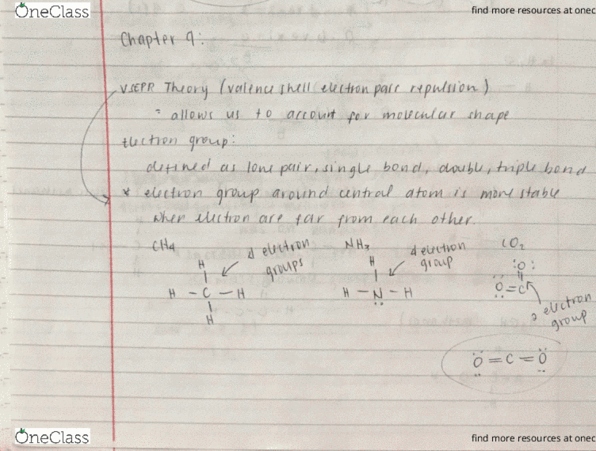 OneClass
find more resources at onec
Chapter 9:
VSEPR Theory (valence shell electron pair repulsion)
allows us to account for molecular shape
Electron group:
defined as lone pair, single bond, double, triple bond
* electron group around central atom is more stable
when electron are far from each other.
CH4
4 electron
groups
H
H - C - H
H
NH3
4 electron
group
H
H - N - H
CO2
:O:
O = C
2 electron
group
O = C = O
OneClass
find more resources at onec